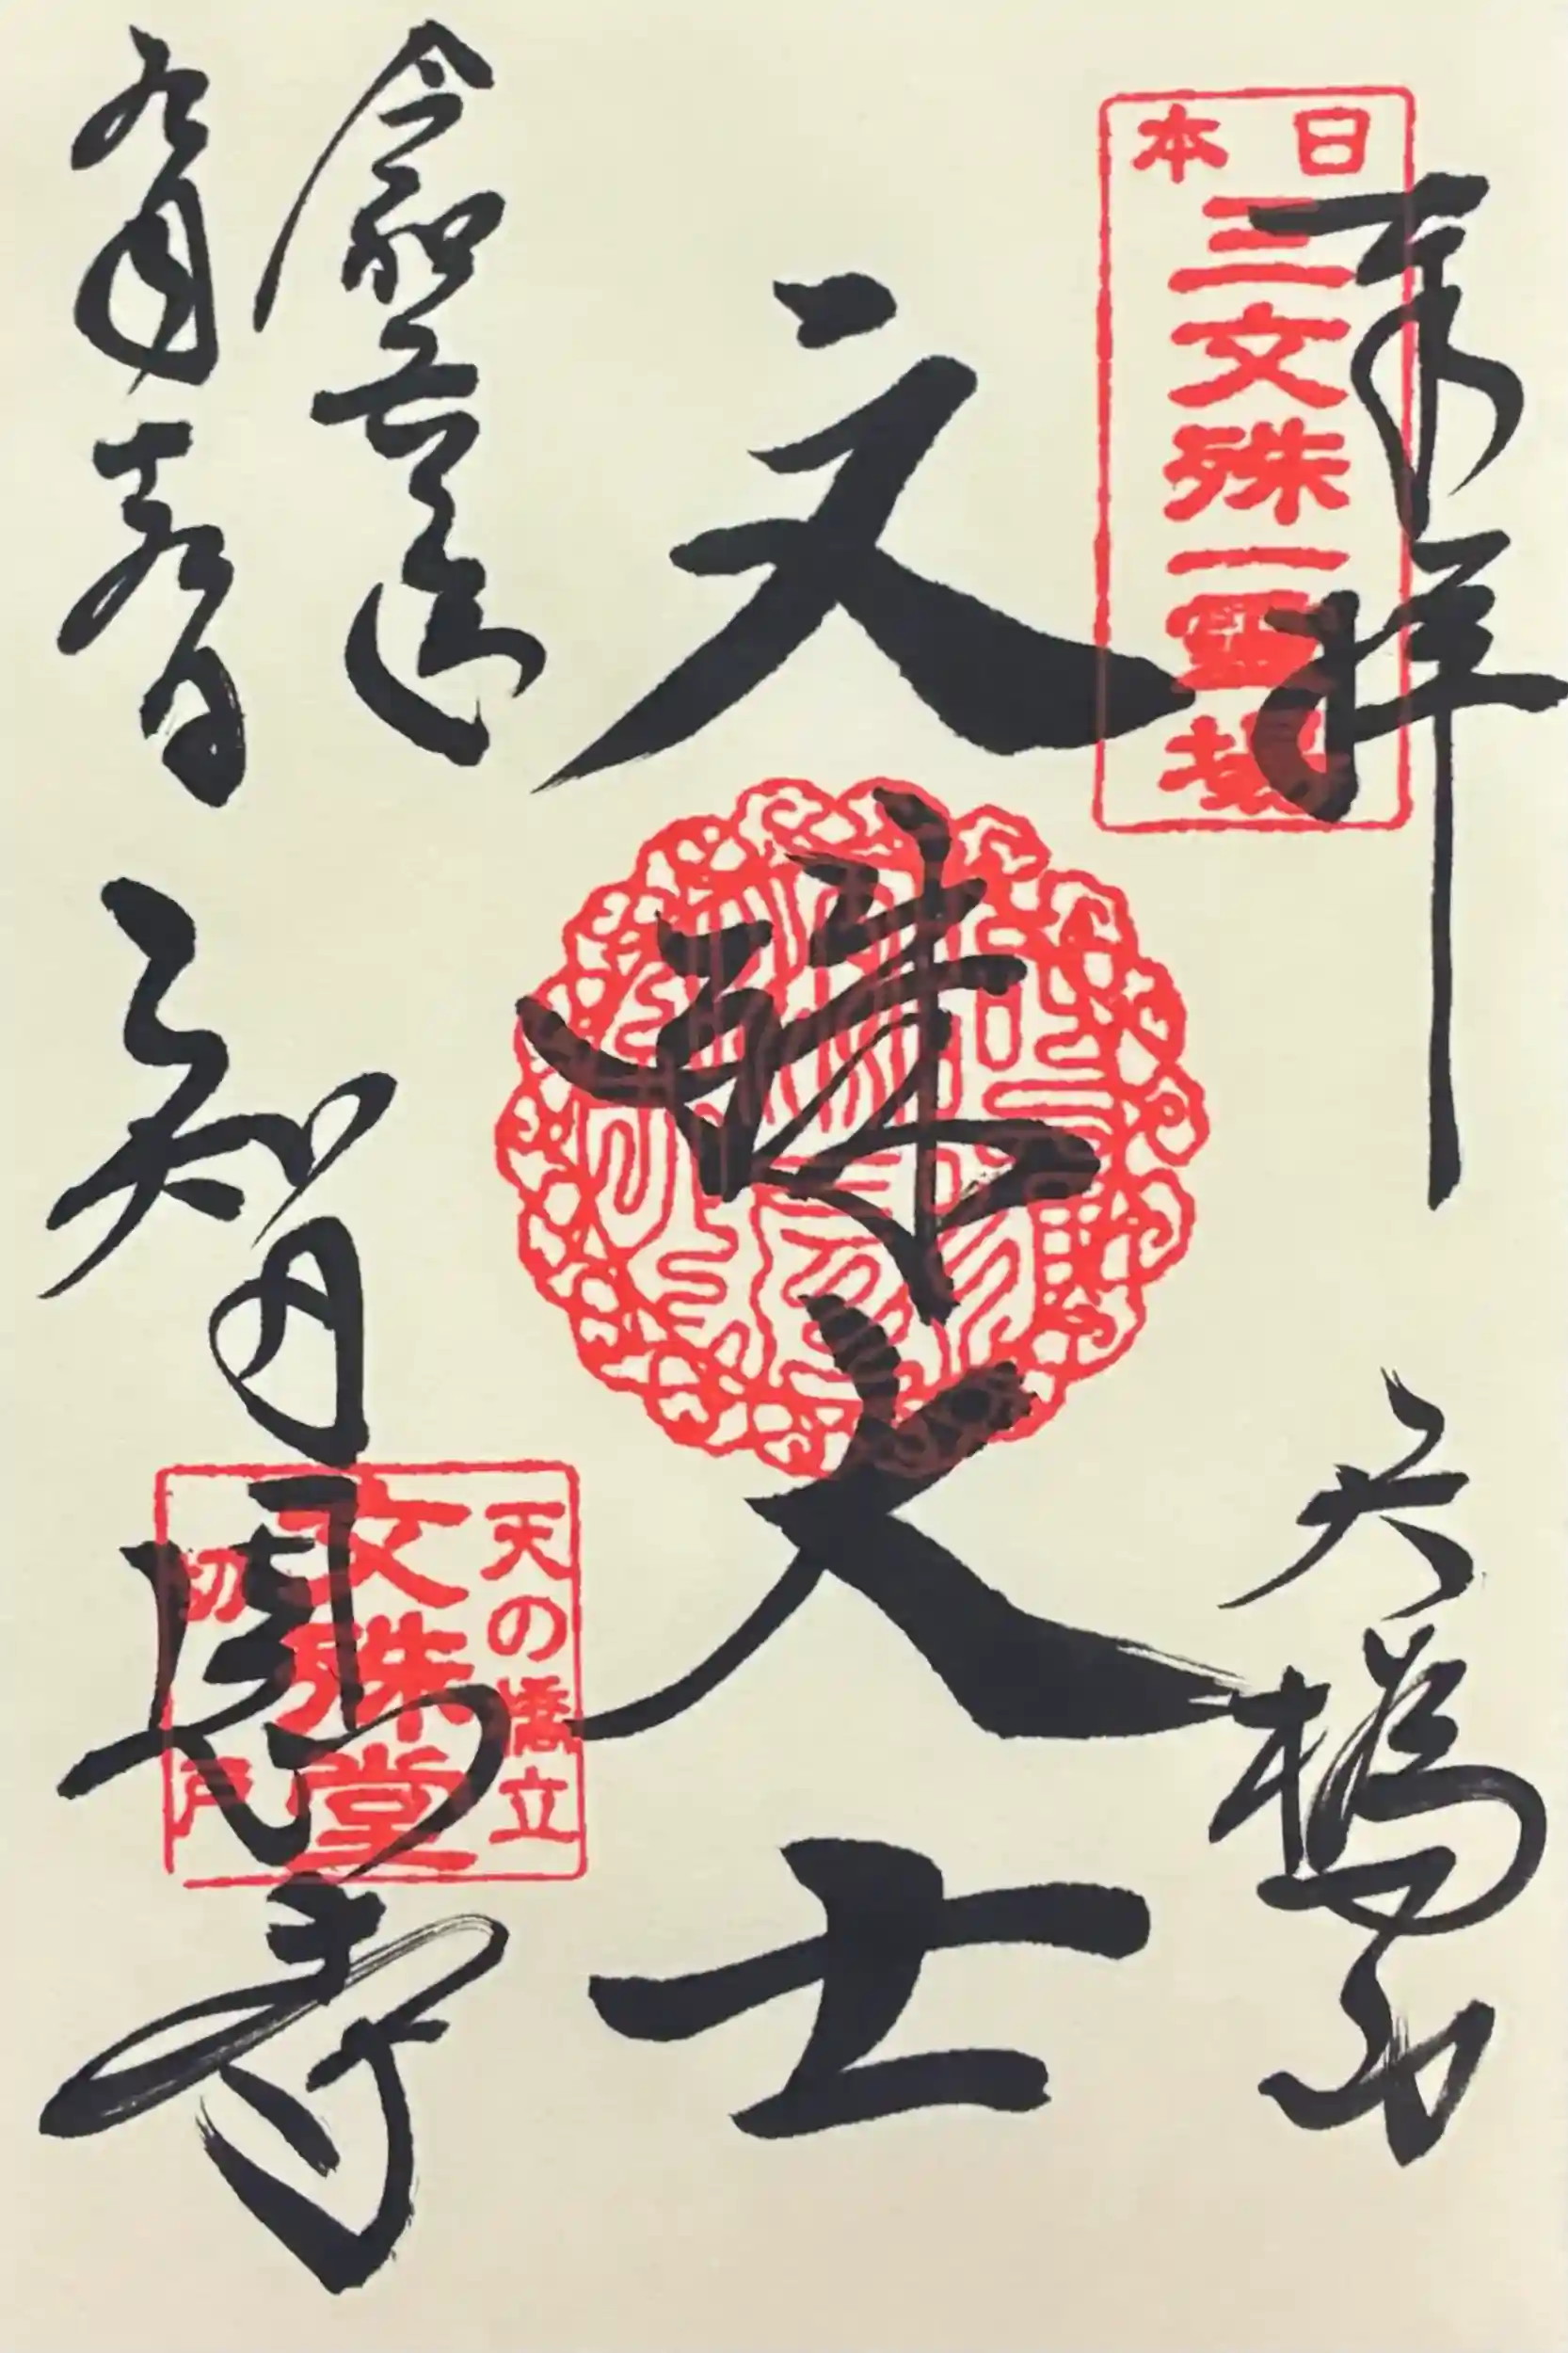 日本
三文殊一霊場
奉拝
天橋山
文殊大士
令和
九月十九日
智恩寺
天の橋立
文殊堂
切戸